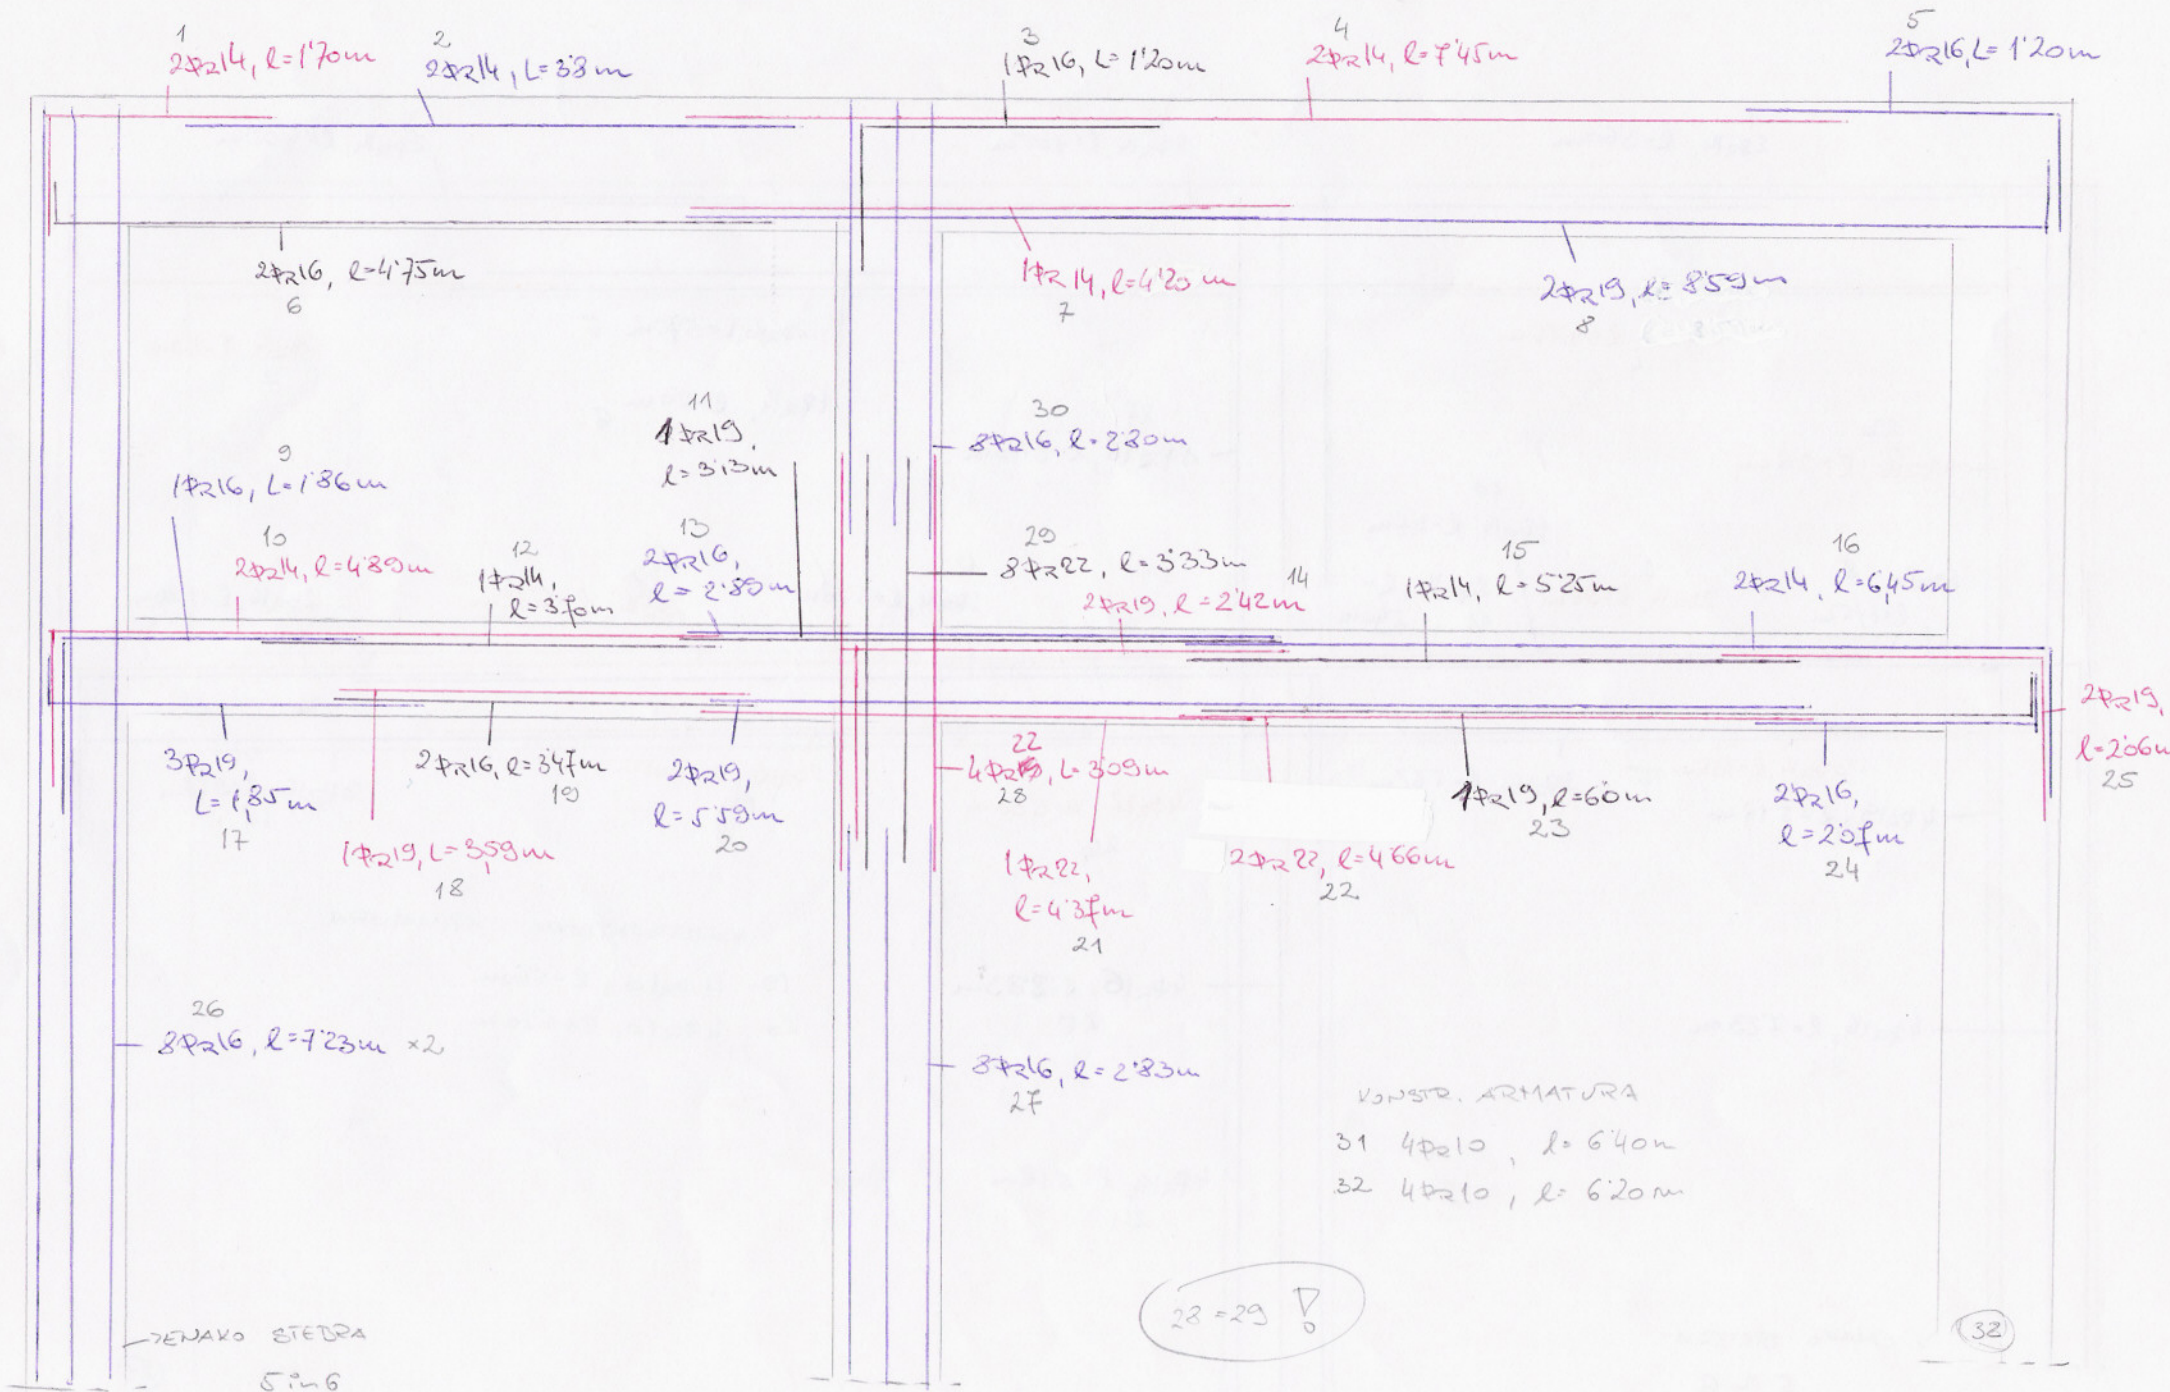 1
2ΦR14, l=1'70m
2
2ΦR14, L=3'8m
3
1ΦR16, L=1'20m
4
2ΦR14, l=7'45m
5
2ΦR16, L=1'20m
2ΦR16, l=4'75m
6
1ΦR14, l=4'20m
7
2ΦR19, l=8'59m
8
9
1ΦR16, L=1'86m
10
2ΦR14, l=4'89m
11
1ΦR19,
l=3'13m
12
1ΦR14,
l=3'70m
13
2ΦR16,
l=2'89m
30
8ΦR16, l=2'80m
29
8ΦR22, l=3'33m
14
2ΦR19, l=2'42m
15
1ΦR14, l=5'25m
16
2ΦR14, l=6,45m
3ΦR19,
L=1,85m
17
1ΦR19, L=3,59m
18
2ΦR16, l=3'47m
19
2ΦR19,
l=5'59m
20
22
4ΦR, L=3'09m
28
1ΦR22,
l=4'37m
21
2ΦR22, l=4'66m
22
1ΦR19, l=6'0m
23
2ΦR16,
l=2'07m
24
2ΦR19,
l=2'06m
25
26
8ΦR16, l=7'23m ×2
8ΦR16, l=2'83m
27
KONSTR. ARMATURA
31 4ΦR10, l=6'40m
32 4ΦR10, l=6'20m
28=29 !
32
ENAKO STEBRA
5 in 6